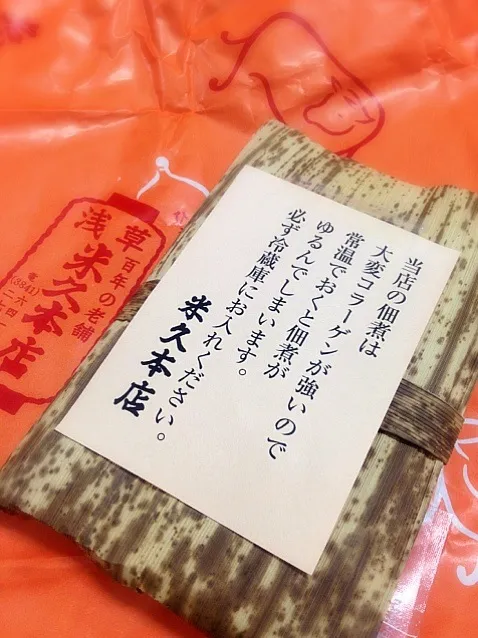 当店の佃煮は
大変コラーゲンが強いので
常温でおくと佃煮が
ゆるんでしまいます。
必ず冷蔵庫にお入れください。
米久本店
百年の老舗
浅草
米久本店
電
(3841)